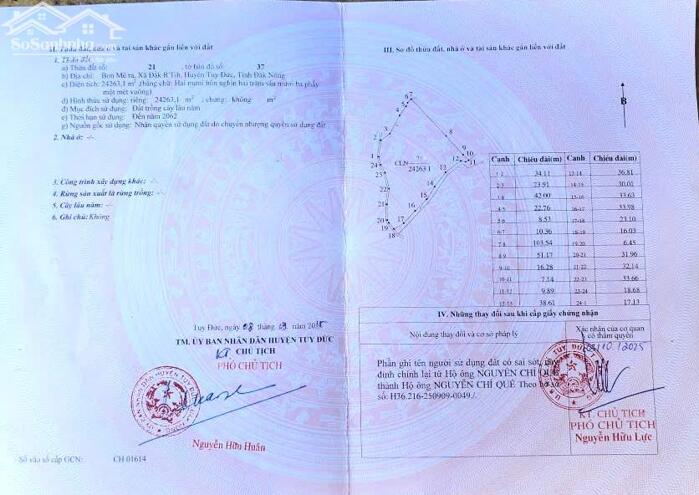 SoSanhnha
II. Thửa đất, nhà ở và tài sản khác gắn liền với đất
1. Thửa đất:
a) Thửa đất số: 21 , tờ bản đồ số: 37
b) Địa chỉ: Bon Mê ra, Xã Đắk R'Tíh, Huyện Tuy Đức, Tỉnh Đắk Nông
c) Diện tích: 24263,1 m² (bằng chữ: Hai mươi bốn nghìn hai trăm sáu mươi ba phẩy
một mét vuông)
d) Hình thức sử dụng: riêng: 24263,1 m²; chung: không m²
đ) Mục đích sử dụng: Đất trồng cây lâu năm
e) Thời hạn sử dụng: Đến năm 2062
g) Nguồn gốc sử dụng: Nhận quyền sử dụng đất do chuyển nhượng quyền sử dụng đất
2. Nhà ở: -/-
3. Công trình xây dựng khác: -/-
4. Rừng sản xuất là rừng trồng: -/-
5. Cây lâu năm: -/-
6. Ghi chú: Không
Tuy Đức, ngày tháng năm
TM. ỦY BAN NHÂN DÂN HUYỆN TUY ĐỨC
KT. CHỦ TỊCH
PHÓ CHỦ TỊCH
Nguyễn Hữu Huân
Số vào sổ cấp GCN: CH 01614
III. Sơ đồ thửa đất, nhà ở và tài sản khác gắn liền với đất
B
CLN 21
24263.1
Cạnh Chiều dài(m) Cạnh Chiều dài(m)
1-2 34.11 13-14 36.81
2-3 23.91 14-15 30.01
42.00 15-16 33.63
4-5 22.76 16-17 33.98
5-6 8.53 17-18 23.10
6-7 10.36 18-19 16.03
7-8 103.54 19-20 6.45
8-9 51.17 20-21 31.96
9-10 16.28 21-22 32.14
10-11 7.14 22-23 33.66
11-12 9.89 23-24 18.68
12-13 38.61 24-1 17.13
IV. Những thay đổi sau khi cấp giấy chứng nhận
Nội dung thay đổi và cơ sở pháp lý
Xác nhận của cơ quan
có thẩm quyền
Phần ghi tên người sử dụng đất có sai sót,
đính chính lại từ Hộ ông NGUYỄN CHÍ QUẾ
thành Hộ ông NGUYỄN CHÍ QUÊ Theo hồ sơ
số: H36.216-250909-0049./.
KT. CHỦ TỊCH
PHÓ CHỦ TỊCH
Nguyễn Hữu Lực